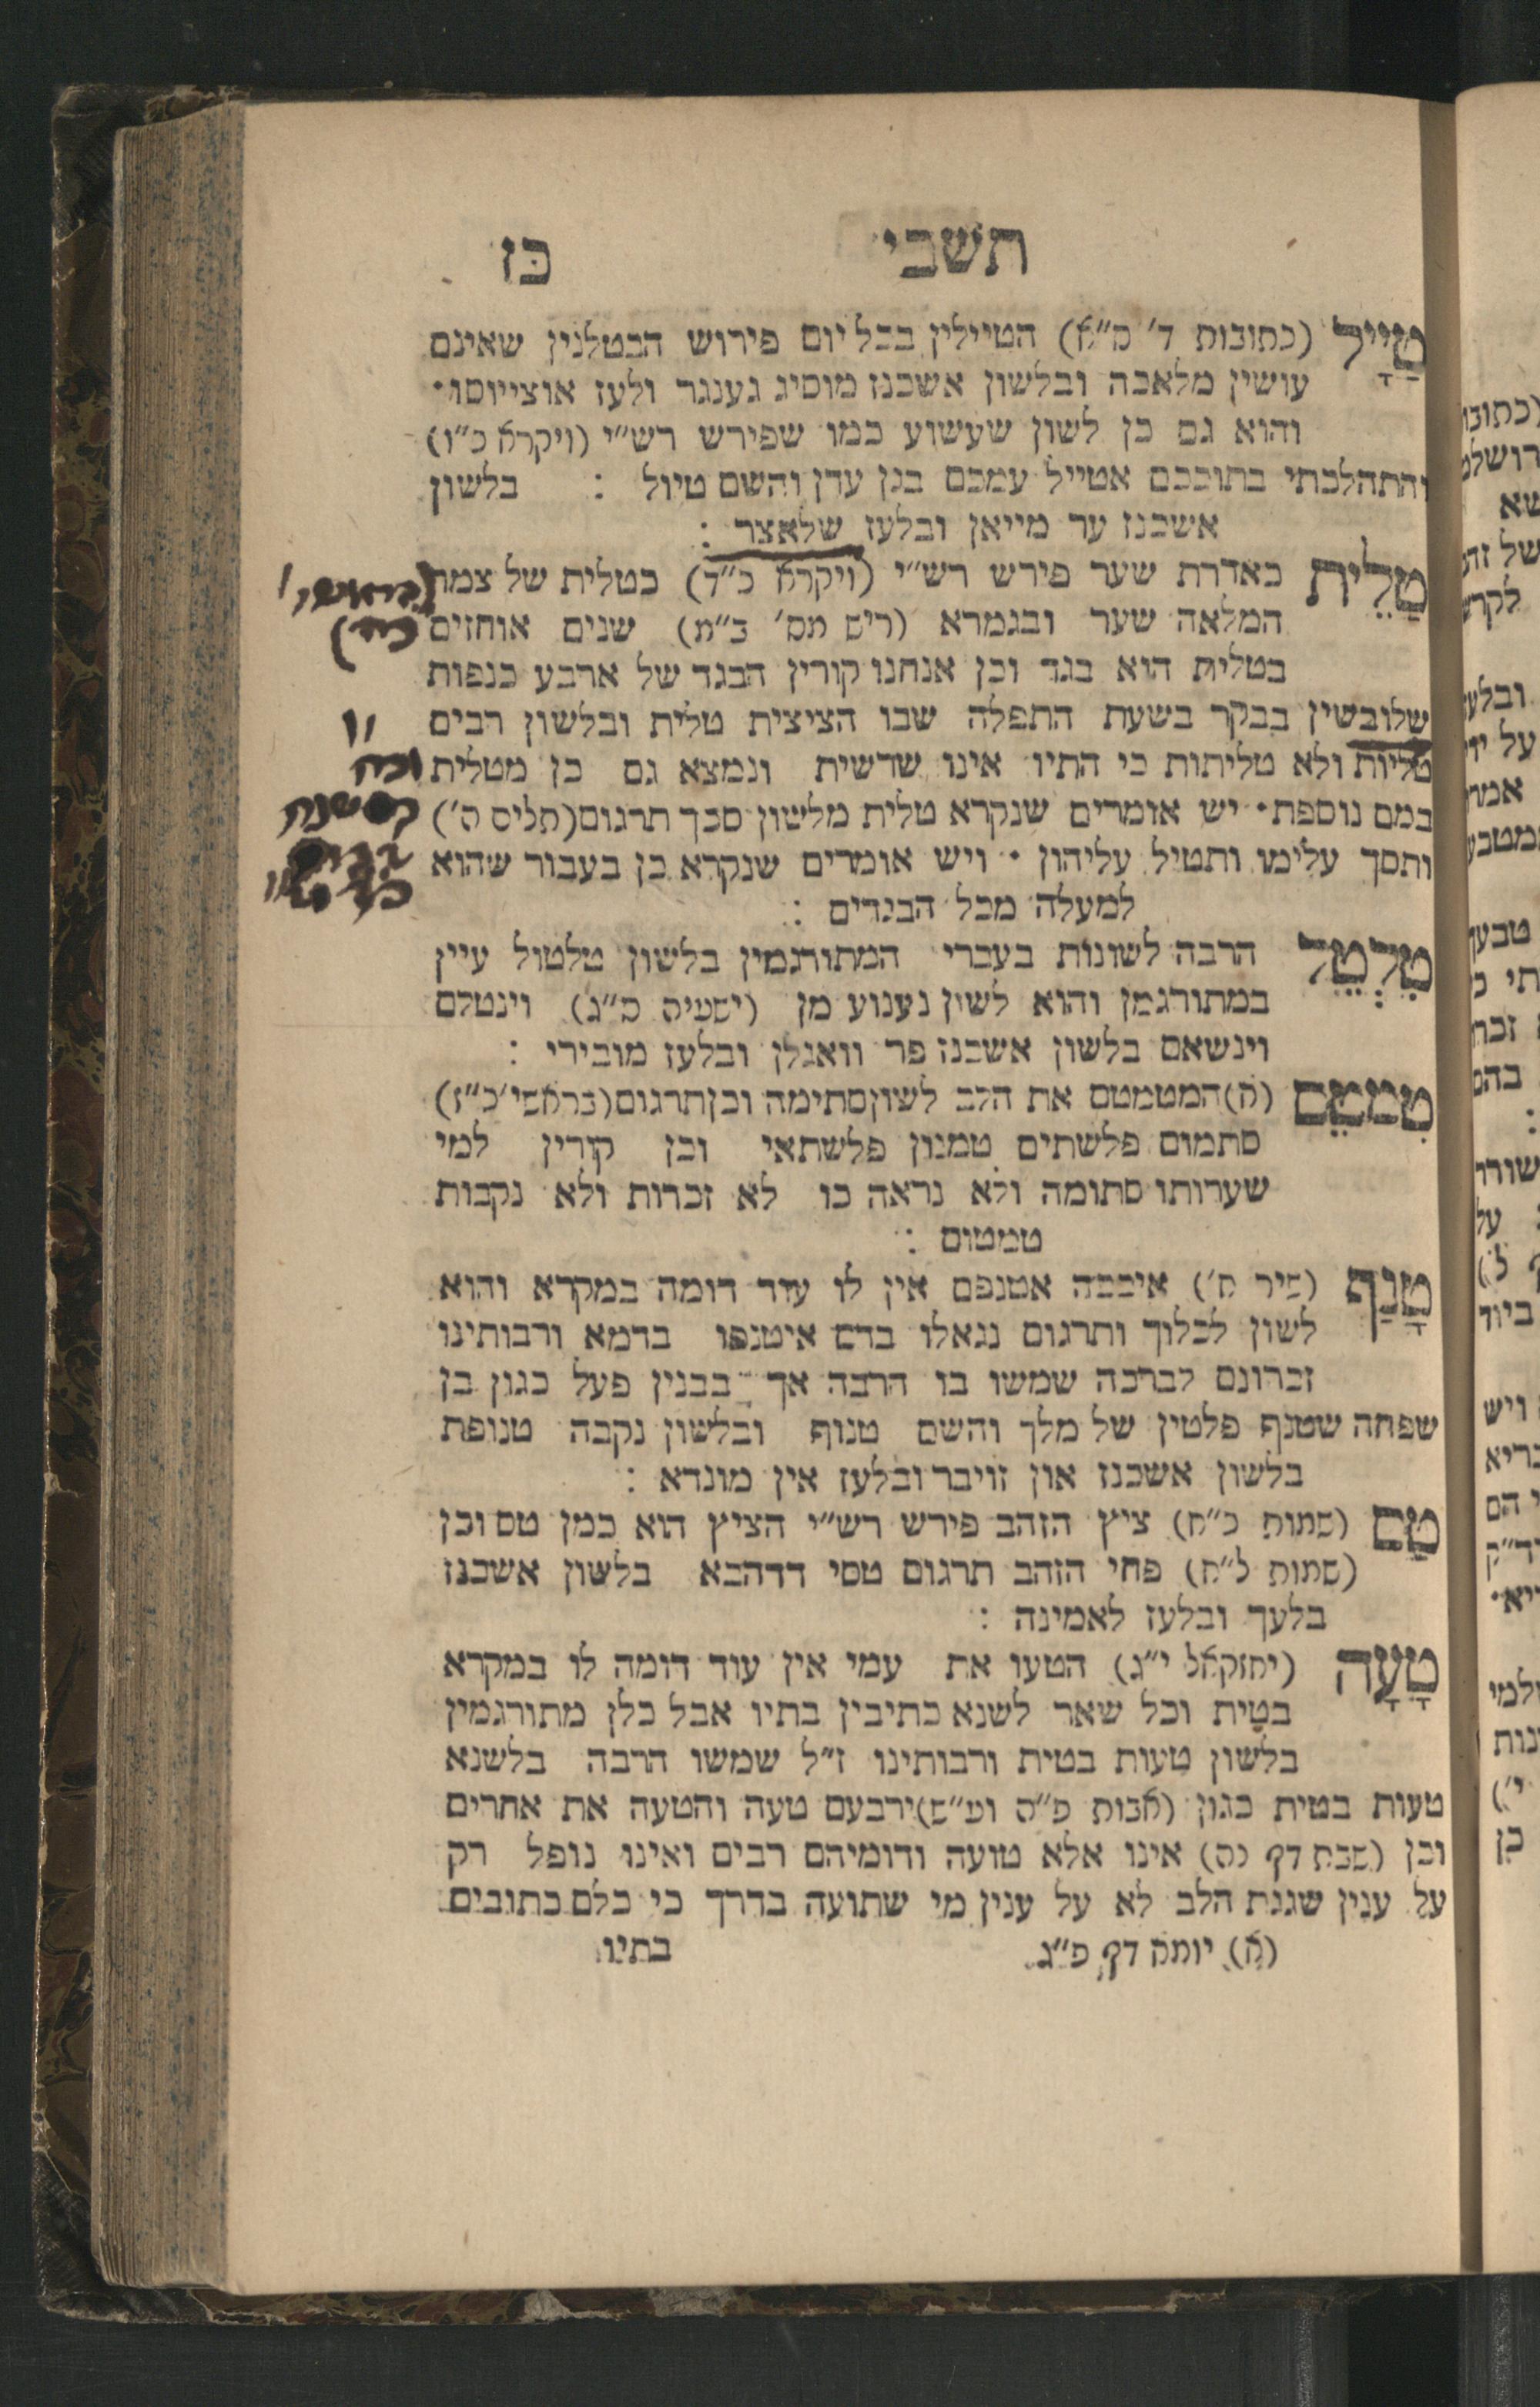 תשבי כז
טַיָּיל (כתובות ד' ס"א) הטיילין בכל יום פירוש הבטלנין שאינם
עושין מלאכה ובלשון אשכנז מוסיג גענגר ולעז אוצייוסו·
והוא גם כן לשון שעשוע כמו שפירש רש"י (ויקרא כ"ו)
והתהלכתי בתוככם אטייל עמכם בגן עדן והשם טיול : בלשון
אשכנז ער מייאן ובלעז שלאצר :
טַלֵּית כאדרת שער פירש רש"י (ויקרא כ"ד) כטלית של צמר
המלאה שער ובגמרא (ריש מס' ב"מ) שנים אוחזים
בטלית הוא בגד וכן אנחנו קורין הבגד של ארבע כנפות
שלובשין בבקר בשעת התפלה שבו הציצית טלית ובלשון רבים
טליות ולא טליתות כי התיו אינו שרשית ונמצא גם כן מטלית
במם נוספת· יש אומרים שנקרא טלית מלשון סכך תרגום (תלים ה')
ותסך עלימו ותטיל עליהון · ויש אומרים שנקרא כן בעבור שהוא
למעלה מכל הבגדים :
טִלְטֵל הרבה לשונות בעברי המתורגמין בלשון טלטול עיין
במתורגמן והוא לשון נענוע מן (ישעיה ס"ג) וינטלם
וינשאם בלשון אשכנז פר וואגלן ובלעז מובירי :
טִמטֵם (א) המטמטם את הלב לשון סתימה וכן תרגום (בראשי' כ"ו)
סתמום פלשתים טמנון פלשתאי וכן קורין למי
שערותו סתומה ולא נראה בו לא זכרות ולא נקבות
טמטום :
טָנַף (שיר ה') איככה אטנפם אין לו עוד דומה במקרא והוא
לשון לכלוך ותרגום נגאלו בדם איטנפו בדמא ורבותינו
זכרונם לברכה שמשו בו הרבה אך בבנין פעל כגון בן
שפחה שטנף פלטין של מלך והשם טנוף ובלשון נקבה טנופת
בלשון אשכנז און זויבר ובלעז אין מונדא :
טַס (שמות כ"ח) ציץ הזהב פירש רש"י הציץ הוא כמן טס וכן
(שמות ל"ח) פחי הזהב תרגום טסי דדהבא בלשון אשכנז
בלעך ובלעז לאמינה :
טָעָה (יחזקאל י"ג) הטעו את עמי אין עוד דומה לו במקרא
בטית וכל שאר לשנא כתיבין בתיו אבל כלן מתורגמין
בלשון טעות בטית ורבותינו ז"ל שמשו הרבה בלשנא
טעות בטית כגון (אבות פ"ה וע"ש) ירבעם טעה והטעה את אחרים
וכן (שבת דף נה) אינו אלא טועה ודומיהם רבים ואינו נופל רק
על ענין שגגת הלב לא על ענין מי שתועה בדרך כי כלם כתובים
(א) יומא דף פ"ג בתיו